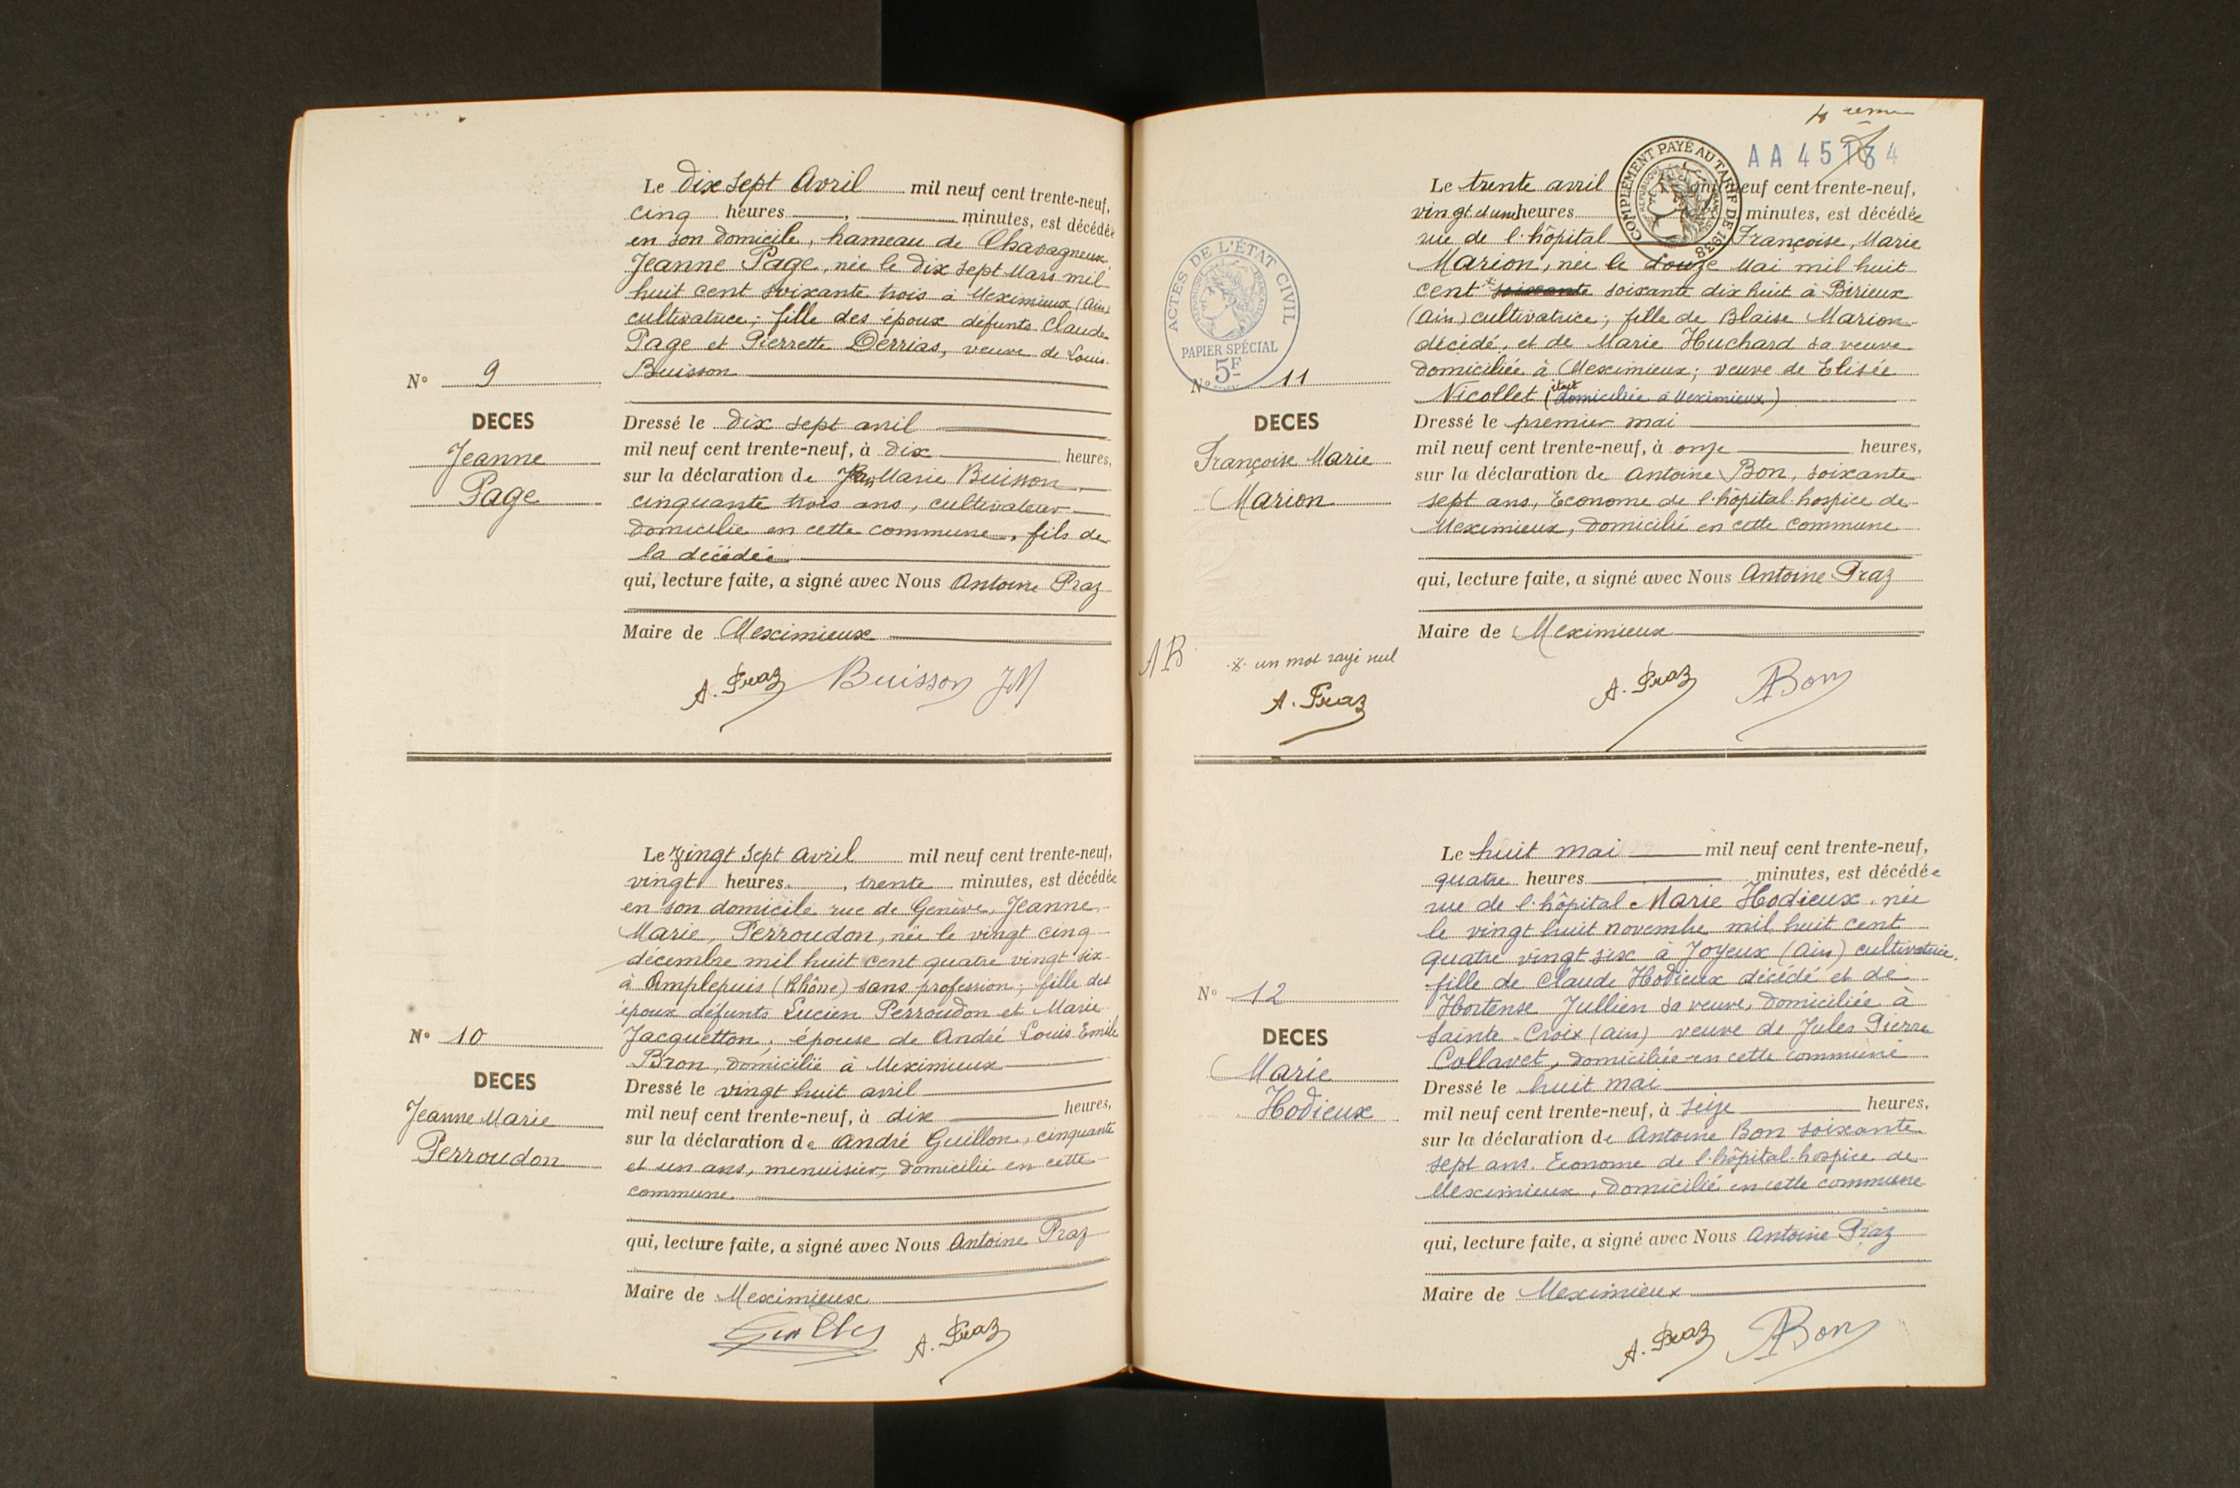 Le dix sept Avril mil neuf cent trente-neuf,
cinq heures minutes, est décédée
en son domicile, hameau de Chavagneux,
Jeanne Page, née le dix sept Mars mil
huit cent soixante trois à Meximieux (Ain)
cultivatrice; fille des époux défunts Claude
Page et Pierrette Derrias, veuve de Louis
Buisson
N° 9
DECES
Jeanne
Page
Dressé le dix sept avril
mil neuf cent trente-neuf, à dix heures,
sur la déclaration de Marie Buisson,
cinquante trois ans, cultivateur
domicilié en cette commune, fils de
la décédée
qui, lecture faite, a signé avec Nous Antoine Praz
Maire de Meximieux
A. Praz Buisson JM
Le vingt sept avril mil neuf cent trente-neuf,
vingt heures, trente minutes, est décédée
en son domicile rue de Genève, Jeanne
Marie, Perroudon, née le vingt cinq
décembre mil huit cent quatre vingt six
à Amplepuis (Rhône) sans profession; fille des
époux défunts Lucien Perroudon et Marie
Jacquetton; épouse de André Louis Emile
Bron, domiciliée à Meximieux
N° 10
DECES
Jeanne Marie
Perroudon
Dressé le vingt huit avril
mil neuf cent trente-neuf, à dix heures,
sur la déclaration de André Guillon, cinquante
et un ans, menuisier, domicilié en cette
commune
qui, lecture faite, a signé avec Nous Antoine Praz
Maire de Meximieux
A. Praz
AA 45184
COMPLEMENT PAYÉ AU TARIF DE 1938
Le trente avril mil neuf cent trente-neuf,
vingt et une heures minutes, est décédée
rue de l'hôpital Françoise, Marie
Marion, née le douze Mai mil huit
cent * soixante soixante dix huit à Birieux
(Ain) cultivatrice; fille de Blaise Marion
décédé, et de Marie Huchard sa veuve
domiciliée à Meximieux; veuve de Elisée
Nicollet (était domiciliée à Meximieux)
ACTES DE L'ÉTAT CIVIL
PAPIER SPÉCIAL
5F
N° 11
DECES
Françoise Marie
Marion
Dressé le premier mai
mil neuf cent trente-neuf, à onze heures,
sur la déclaration de Antoine Bon, soixante
sept ans, Econome de l'hôpital-hospice de
Meximieux, domicilié en cette commune
qui, lecture faite, a signé avec Nous Antoine Praz
Maire de Meximieux
AB * un mot rayé nul
A. Praz
A. Praz ABon
Le huit mai mil neuf cent trente-neuf,
quatre heures minutes, est décédée
rue de l'hôpital Marie Hodieux, née
le vingt huit novembre mil huit cent
quatre vingt six à Joyeux (Ain) cultivatrice,
fille de Claude Hodieux décédé et de
Hortense Jullien sa veuve, domiciliée à
Sainte-Croix (Ain) veuve de Jules Pierre
Collavet, domiciliée en cette commune
N° 12
DECES
Marie
Hodieux
Dressé le huit mai
mil neuf cent trente-neuf, à seize heures,
sur la déclaration de Antoine Bon soixante
sept ans. Econome de l'hôpital-hospice de
Meximieux, domicilié en cette commune
qui, lecture faite, a signé avec Nous Antoine Praz
Maire de Meximieux
A. Praz ABon